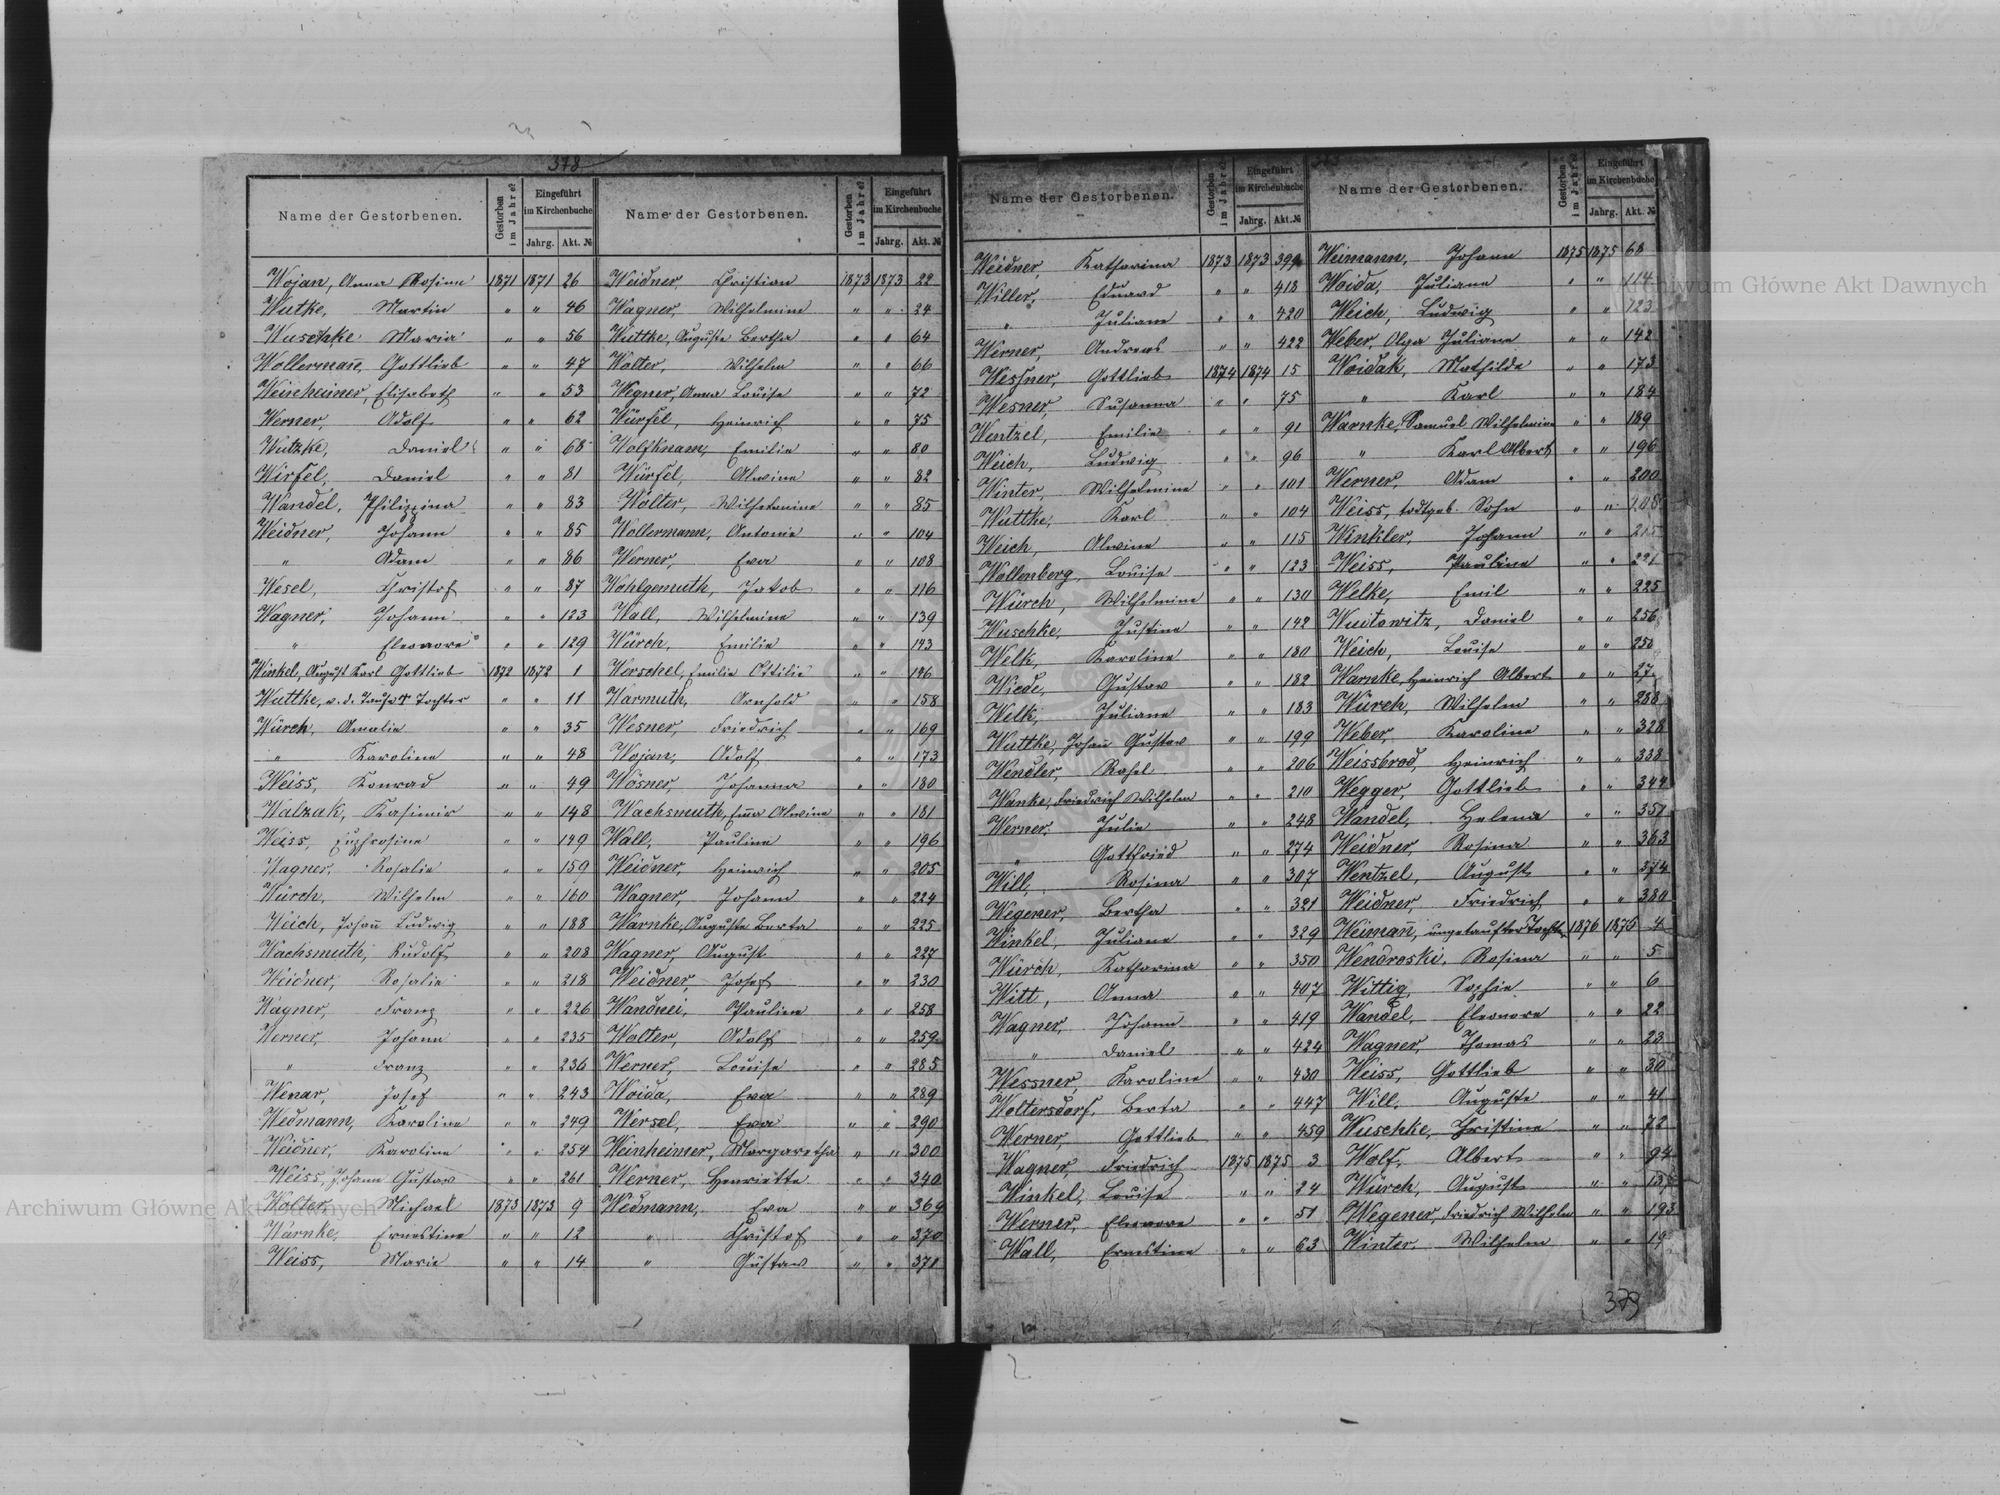 378
Name der Gestorbenen. Gestorben im Jahre? Eingeführt im Kirchenbuche Jahrg. Akt. №
Wojan, Anna Rosine 1871 1871 26
Wutke, Martin " " 46
Wuschke Maria " " 56
Wollermañ, Gottlieb " " 47
Weinheimer, Elisabeth " " 53
Werner, Adolf " " 62
Wutzke, Daniel " " 68
Wirfel, Daniel " " 81
Wandel, Philippina " " 83
Weidner, Johann " " 85
" Adam " " 86
Wesel, Christof " " 87
Wagner, Johann " " 123
" Eleonore " " 129
Winkel, August Karl Gottlieb 1872 1872 1
Wuttke, v. d. Taufe † Tochter " " 11
Würch, Amalie " " 35
" Karoline " " 48
Weiss, Konrad " " 49
Walzak, Kasimir " " 148
Weiss, Euphrosine " " 149
Wagner, Rosalie " " 159
Würch, Wilhelm " " 160
Weich, Johañ Ludwig " " 188
Wachsmuth, Rudolf " " 208
Weidner, Rosalie " " 218
Wagner, Franz " " 226
Werner, Johann " " 235
" Franz " " 236
Wenar, Josef " " 243
Wedmann, Karoline " " 249
Weidner, Karoline " " 254
Weiss, Johann Gustav " " 261
Wolter, Michael 1873 1873 9
Warnke, Ernestine " " 12
Weiss, Marie " " 14
Name der Gestorbenen. Gestorben im Jahre? Eingeführt im Kirchenbuche Jahrg. Akt. №
Weidner, Christian 1873 1873 22
Wagner, Wilhelmine " " 24
Wuttke, Auguste Bertha " " 64
Wolter, Wilhelm " " 66
Wegner, Anna Louise " " 72
Würfel, Heinrich " " 75
Wolfknam, Emilie " " 80
Würfel, Alwine " " 82
Wolter, Wilhelmine " " 85
Wollermann, Antonie " " 104
Werner, Eva " " 108
Wohlgemuth, Jakob " " 116
Wall, Wilhelmine " " 139
Würch, Emilie " " 143
Worschel, Emilie Ottilie " " 146
Warmuth, Arnhold " " 158
Wesner, Friedrich " " 169
Wojan, Adolf " " 173
Wösner, Johanna " " 180
Wachsmuth, Eṁa Alwine " " 181
Wall, Pauline " " 196
Weidner, Heinrich " " 205
Wagner, Johann " " 224
Warnke, Auguste Berta " " 225
Wagner, August " " 227
Weidner, Josef " " 230
Wandnei, Pauline " " 258
Walter, Adolf " " 259
Werner, Louise " " 285
Woida, Eva " " 289
Wersel, Eva " " 290
Weinheimer, Margaretha " " 300
Werner, Henriette " " 340
Wedmann, Eva " " 369
" Christof " " 370
" Gustav " " 371
Name der Gestorbenen. Gestorben im Jahre? Eingeführt im Kirchenbuche Jahrg. Akt. №
Weidner, Katharina 1873 1873
Willer, Eduard " " 418
" Juliane " " 420
Werner, Andreas " " 422
Wessner, Gottlieb 1874 1874 15
Wesner, Susanna " " 75
Wentzel, Emilie " " 91
Weich, Ludwig " " 96
Winter, Wilhelmine " " 101
Wuttke, Karl " " 104
Weich, Alwine " " 115
Wollenberg, Louise " " 123
Würch, Wilhelmine " " 130
Wuschke, Justine " " 142
Welk, Karoline " " 180
Wiede, Gustav " " 182
Welk, Juliane " " 183
Wuttke, Johañ Gustav " " 199
Wendler, Rahel " " 206
Wanke, Friedrich Wilhelm " " 210
Werner, Julie " " 248
" Gottfried " " 274
Will, Rosina " " 307
Wegener, Bertha " " 321
Winkel, Juliane " " 329
Würch, Katharina " " 350
Witt, Anna " " 407
Wagner, Johann " " 419
" Daniel " " 424
Wessner, Karoline " " 430
Woltersdorf, Berta " " 447
Werner, Gottlieb " " 459
Wagner, Friedrich 1875 1875 3
Winkel, Louise " " 24
Werner, Eleonore " " 51
Wall, Ernestine " " 63
Name der Gestorbenen. Gestorben im Jahre? Eingeführt im Kirchenbuche Jahrg. Akt. №
Weimann, Johann 1875 1875 68
Woida, Juliane " " 114
Weich, Ludwig " " 123
Weber, Olga Juliane " " 142
Woidak, Mathilde " " 173
" Karl " " 184
Warnke, Samuel Wilhelmine " " 189
" Karl Albert " " 196
Werner, Adam " " 200
Weiss, todtgeb. Sohn " "
Winkler, Johann " " 215
Weiss, Pauline " " 221
Welke, Emil " " 225
Wuitowitz, Daniel " " 256
Weich, Louise " "
Warnke, Heinrich Albert " "
Würch, Wilhelm " " 288
Weber, Karoline " " 328
Weissbrod, Heinrich " " 338
Wegger, Gottlieb " " 344
Wandel, Helena " " 351
Weidner, Rosina " " 363
Wentzel, August " " 374
Weidner, Friedrich " " 380
Weiman, ungetaufter Tochter 1876 1876 4
Wendroski, Rosina " " 5
Wittig, Sophie " " 6
Wandel, Eleonore " " 22
Wagner, Thomas " " 23
Weiss, Gottlieb " " 30
Will, Auguste " " 41
Wuschke, Christine " " 72
Wolf, Albert " " 94
Würch, August " "
Wegener, Friedrich Wilhelm " " 193
Winter, Wilhelm " "
379
Archiwum Główne Akt Dawnych
Archiwum Główne Akt Dawnych